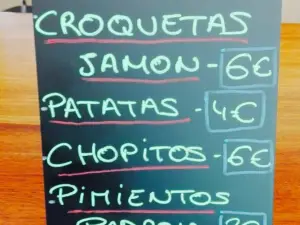 CROQUETAS
JAMON - 6€
-PATATAS - 4€
-CHOPITOS - 6€
-PIMIENTOS